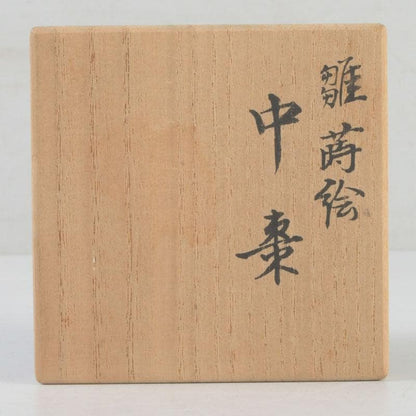 雛蒔絵
中棗